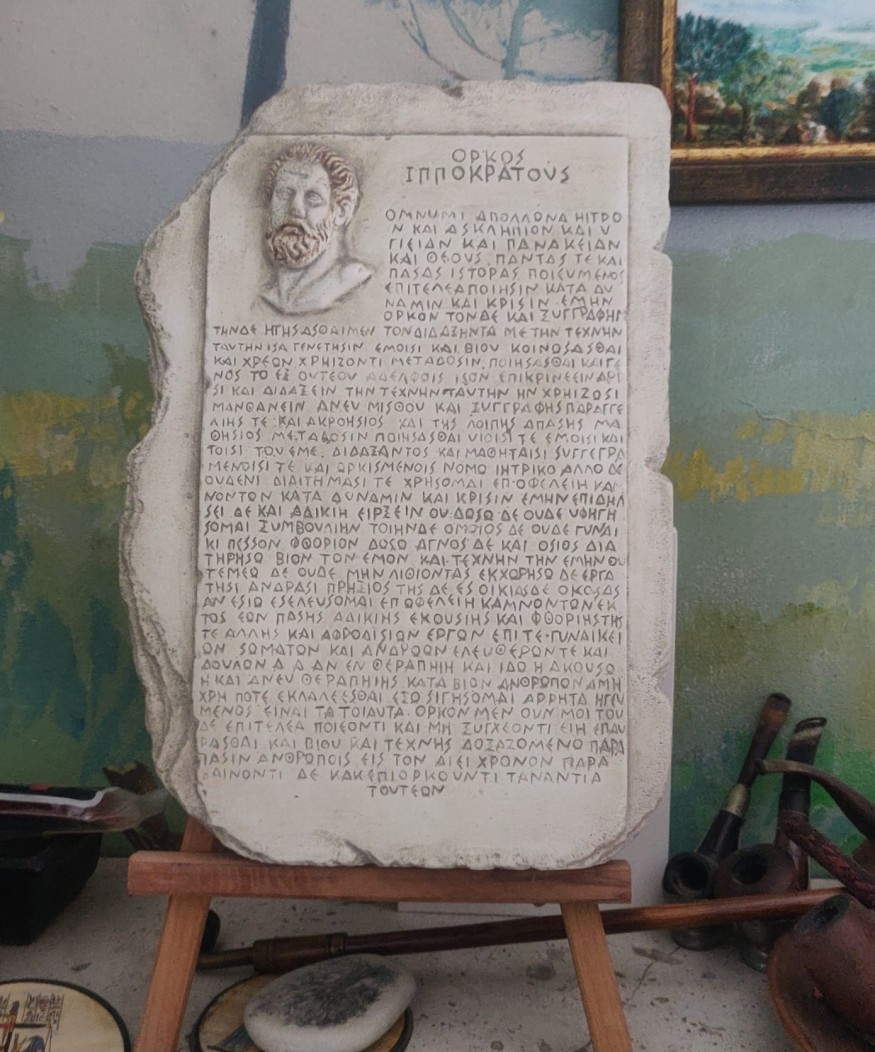 ΟΡΚΟΣ
ΙΠΠΟΚΡΑΤΟΥΣ
ΟΜΝUΜΙ ΑΠΟΛΛΩΝΑ ΗΙΤΡΟ
Ν ΚΑΙ ΑΣΚΛΗΠΙΟΝ ΚΑΙ Υ
ΓΙΕΙΑΝ ΚΑΙ ΠΑΝΑΚΕΙΑΝ
ΚΑΙ ΘΕΟΥΣ ΠΑΝΤΑΣ ΤΕ ΚΑΙ
ΠΑΣΑΣ ΙΣΤΟΡΑΣ ΠΟΙΕΥΜΕΝΟΣ
ΕΠΙΤΕΛΕΑ ΠΟΙΗΣΙΝ ΚΑΤΑ ΔΥ
ΝΑΜΙΝ ΚΑΙ ΚΡΙΣΙΝ ΕΜΗΝ
ΟΡΚΟΝ ΤΟΝΔΕ ΚΑΙ ΞΥΓΓΡΑΦΗΝ
ΤΗΝΔΕ ΗΓΗΣΑΣΘΑΙ ΜΕΝ ΤΟΝ ΔΙΔΑΞΗΝΤΑ ΜΕ ΤΗΝ ΤΕΧΝΗΝ
ΤΑΥΤΗΝ ΙΣΑ ΓΕΝΕΤΗΣΙΝ ΕΜΟΙΣΙ ΚΑΙ ΒΙΟΥ ΚΟΙΝΩΣΑΣΘΑΙ
ΚΑΙ ΧΡΕΩΝ ΧΡΗΙΖΟΝΤΙ ΜΕΤΑΔΟΣΙΝ ΠΟΙΗΣΑΣΘΑΙ ΚΑΙ ΓΕ
ΝΟΣ ΤΟ ΕΞ ΟΥΤΕΟΥ ΑΔΕΛΦΟΙΣ ΙΣΟΝ ΕΠΙΚΡΙΝΕΕΙΝ ΑΡΡ
ΣΙ ΚΑΙ ΔΙΔΑΞΕΙΝ ΤΗΝ ΤΕΧΝΗΝ ΤΑΥΤΗΝ ΗΝ ΧΡΗΙΖΩΣΙ
ΜΑΝΘΑΝΕΙΝ ΑΝΕΥ ΜΙΣΘΟΥ ΚΑΙ ΞΥΓΓΡΑΦΗΣ ΠΑΡΑΓΓΕ
ΛΙΗΣ ΤΕ ΚΑΙ ΑΚΡΟΗΣΙΟΣ ΚΑΙ ΤΗΣ ΛΟΙΠΗΣ ΑΠΑΣΗΣ ΜΑ
ΘΗΣΙΟΣ ΜΕΤΑΔΟΣΙΝ ΠΟΙΗΣΑΣΘΑΙ ΥΙΟΙΣΙ ΤΕ ΕΜΟΙΣΙ ΚΑΙ
ΤΟΙΣΙ ΤΟΥ ΕΜΕ ΔΙΔΑΞΑΝΤΟΣ ΚΑΙ ΜΑΘΗΤΑΙΣΙ SΥΓΓΕΓΡΑ
ΜΕΝΟΙΣΙ ΤΕ ΚΑΙ ΩΡΚΙΣΜΕΝΟΙΣ ΝΟΜΩ ΙΗΤΡΙΚΟ ΑΛΛΟ ΔΕ
ΟΥΔΕΝΙ ΔΙΑΙΤΗΜΑΣΙ ΤΕ ΧΡΗΣΟΜΑΙ ΕΠ ΟΦΕΛΕΙΗ ΚΑΜ
ΝΟΝΤΩΝ ΚΑΤΑ ΔΥΝΑΜΙΝ ΚΑΙ ΚΡΙΣΙΝ ΕΜΗΝ ΕΠΙ ΔΗΛ
ΣΕΙ ΔΕ ΚΑΙ ΑΔΙΚΙΗ ΕΙΡΞΕΙΝ ΟΥ ΔΩΣΩ ΔΕ ΟΥΔΕ ΥΦΗΓΗ
ΣΟΜΑΙ ΞΥΜΒΟΥΛΙΗΝ ΤΟΙΗΝΔΕ ΟΜΟΙΟΣ ΔΕ ΟΥΔΕ ΓΥΝΑΙ
ΚΙ ΠΕΣΣΟΝ ΦΘΟΡΙΟΝ ΔΩΣΩ ΑΓΝΟΣ ΔΕ ΚΑΙ ΟΣΙΟΣ ΔΙΑ
ΤΗΡΗΣΩ ΒΙΟΝ ΤΟΝ ΕΜΟΝ ΚΑΙ ΤΕΧΝΗΝ ΤΗΝ ΕΜΗΝ ΟΥ
ΤΕΜΕΩ ΔΕ ΟΥΔΕ ΜΗΝ ΛΙΘΙΟΝΤΑΣ ΕΚΧΩΡΗΣΩ ΔΕ ΕΡΓΑ
ΤΗΣΙ ΑΝΔΡΑΣΙ ΠΡΗΞΙΟΣ ΤΗΣ ΔΕ ΕΣ ΟΙΚΙΑΣ ΔΕ ΟΚΟΣΑΣ
ΑΝ ΕΣΙΩ ΕΣΕΛΕΥΣΟΜΑΙ ΕΠ ΩΦΕΛΕΙΗ ΚΑΜΝΟΝΤΩΝ ΕΚ
ΤΟΣ ΕΩΝ ΠΑΣΗΣ ΑΔΙΚΙΗΣ ΕΚΟΥΣΙΗΣ ΚΑΙ ΦΘΟΡΙΗΣ ΤΗΣ
ΤΕ ΑΛΛΗΣ ΚΑΙ ΑΦΡΟΔΙΣΙΩΝ ΕΡΓΩΝ ΕΠΙ ΤΕ ΓΥΝΑΙΚΕΙ
ΩΝ ΣΩΜΑΤΩΝ ΚΑΙ ΑΝΔΡΩΩΝ ΕΛΕΥΘΕΡΩΝ ΤΕ ΚΑΙ
ΔΟΥΛΩΝ Α Δ ΑΝ ΕΝ ΘΕΡΑΠΗΙΗ ΚΑΙ ΙΔΩ Η ΑΚΟΥΣΩ
Η ΚΑΙ ΑΝΕΥ ΘΕΡΑΠΗΙΗΣ ΚΑΤΑ ΒΙΟΝ ΑΝΘΡΩΠΩΝ Α ΜΗ
ΧΡΗ ΠΟΤΕ ΕΚΛΑΛΕΕΣΘΑΙ ΕΞΩ ΣΙΓΗΣΟΜΑΙ ΑΡΡΗΤΑ ΗΓΕΥ
ΜΕΝΟΣ ΕΙΝΑΙ ΤΑ ΤΟΙΑΥΤΑ ΟΡΚΟΝ ΜΕΝ ΟΥΝ ΜΟΙ ΤΟΥ
ΔΕ ΕΠΙΤΕΛΕΑ ΠΟΙΕΟΝΤΙ ΚΑΙ ΜΗ ΞΥΓΧΕΟΝΤΙ ΕΙΗ ΕΠΑΥ
ΡΑΣΘΑΙ ΚΑΙ ΒΙΟΥ ΚΑΙ ΤΕΧΝΗΣ ΔΟΞΑΖΟΜΕΝΟ ΠΑΡΑ
ΠΑΣΙΝ ΑΝΘΡΩΠΟΙΣ ΕΙΣ ΤΟΝ ΑΙΕΙ ΧΡΟΝΟΝ ΠΑΡΑ
ΒΑΙΝΟΝΤΙ ΔΕ ΚΑΚΕΠΙΟΡΚΟΥΝΤΙ ΤΑΝΑΝΤΙΑ
ΤΟΥΤΕΩΝ